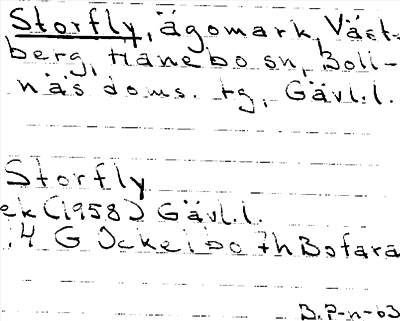 Storfly, ägomark, Väst-
berg, Hanebo sn, Boll-
näs doms. tg, Gävl.l.
Storfly
ek (1958) Gävl.l.
.4 G Ockelbo 7h Bofara
B.P-n-63